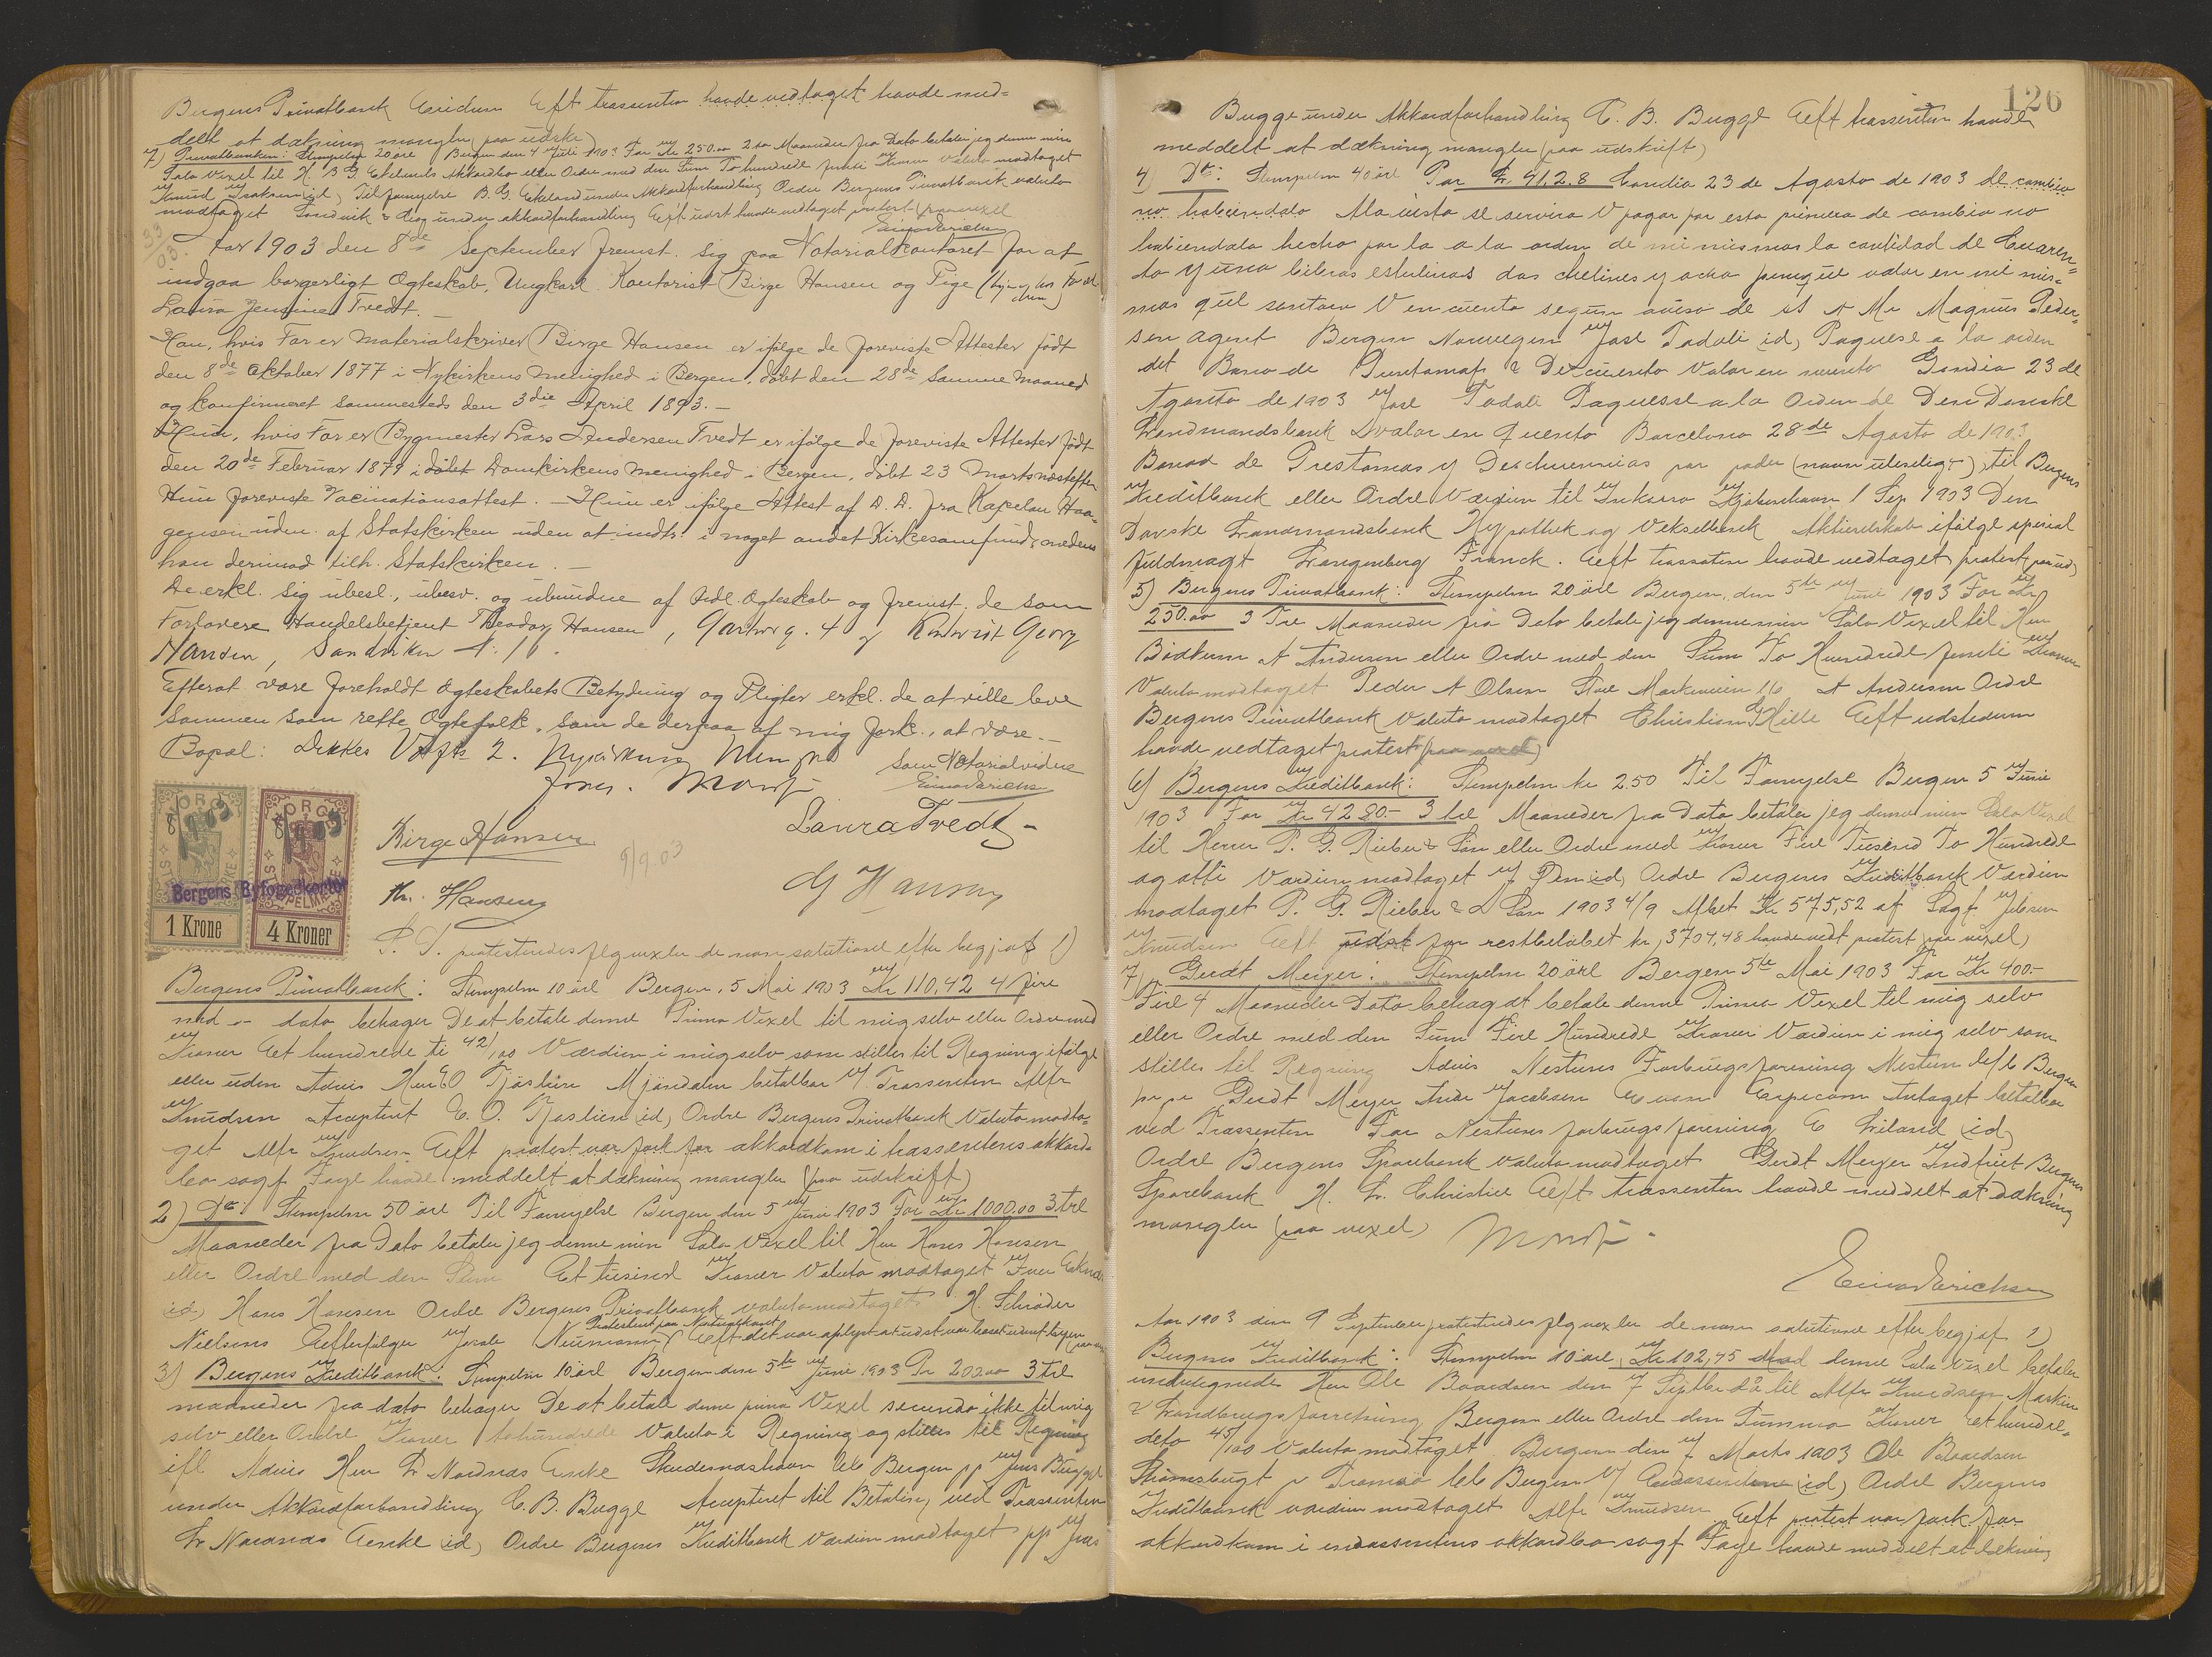 Bergens Privatbank Eft trassenten havde vedtaget havde med=
delt at dækning mangler paa
7) Privatbanken: Stempelm 20 øre Bergen den 4 Juli 1903 For Kr 250.00 2 to Maaneder fra Dato betaler jeg denne min
Sola Vexel til H. B G. Ekelunds Akkordbo eller Ordre med den Sum To hundrede femti Kroner Valuta modtaget
Knud Isaksen (id) Til fornyelse B. G. Ekeland under Akkordforhandling Ordre Bergens Privatbank valuta
modtaget under akkordforhandling Eft udst havde vedtaget protest (paa vexel)
Einar Erichsen
33/03.
Aar 1903 den 8de September fremst. sig paa Notarialkontoret for at
indgaa borgerligt Ægteskab, Ungkarl Kontorist Birge Hansen og Pige
Laura Jensine Tvedt. _
Han, hvis Far er Materialskriver Birge Hansen er ifølge de foreviste Attester født
den 8de Oktober 1877 i Nykirkens Menighed i Bergen, døbt den 28de samme Maaned
og konfirmeret sammesteds den 3die April 1893. _
Hun, hvis Far er Bygmester Lars Andersen Tvedt er ifølge de foreviste Attester født
den 20de Februar 1879 i døbt Domkirkens Menighed i Bergen, døbt 23 Marts næstefter
Hun foreviste Vaccinationsattest. _ Hun er ifølge Attest af D. D. fra Kapelan Haa-
gensen uden. af Statskirken uden at indtr. i noget andet Kirkesamfund, medens
han derimod tilh. Statskirken. _
De erkl. sig ubesl., ubesv. og ubundne af tidl. Ægteskab og fremst. de som
Forlovere Handelsbetjent Theodor Hansen, Gartnerg. 4 og Kontorist Georg
Hansen, Sandviken N. 16.
Efterat være foreholdt Ægteskabets Betydning og Pligter erkl. de at ville leve
sammen som rette Ægtefolk, som de derpaa af mig fork., at være. _
Bopæl: Dekkes 2. Nykirkens Men
som Notarialvidne
Einar Erichsen
NORGE NORGE
8 9 1903 8 9 1903
Bergens Byfogedkontor
1 Krone 4 Kroner
Birge Hansen Laura Tvedt -
9/9.03
Th. Hansen G Hansen
S. D. protesteredes flg vexler de non solutione efter begj af 1)
Bergens Privatbank: Stempelm 10 øre Bergen, 5 Mai 1903 Kr 110,42 4 fire
md a dato behager De at betale denne Prima Vexel til mig selv eller Ordre med
Kroner Et hundrede ti 42/100 Værdien i mig selv som stilles til Regning ifølge
eller uden Advis Herr E O Mjøndalen betalbar v/ Trassenten Alfr
Knudsen Accepteret E. O. (id) Ordre Bergens Privatbank Valuta modta=
get Alfr Knudsen Eft protest var fork for akkordkom i trassentens akkord=
bo sagf Faye havde meddelt at dækning mangler (paa udskrift)
2) Do: Stempelm 50 øre Til Fornyelse Bergen den 5 Juni 1903 For Kr 1000.00 3 tre
Maaneder fra Dato betaler jeg denne min Sola Vexel til Herr Hans Hansen
eller Ordre med den Sum Et tusind Kroner Valuta modtaget
(id) Hans Hansen Ordre Bergens Privatbank valuta modtaget H. Schrøder
Protesteret paa Notarialkont
Nielsens Efterfølger Neumann Eft det var oplyst at udst var
3) Bergens Kreditbank: Stempelm 10 øre Bergen den 5te Juni 1903 Pr 200.00 3 tre
maaneder fra dato behager De at betale denne prima Vexel secunda ikke til mig
selv eller Ordre Kroner tohundrede Valuta i Regning og stilles til Regning
ifl Advis Herr Enke Skudesnæshavn Bergen pp Jens Bugge
under Akkordforhandling C. B. Bugge Accepteret til Betaling ved Trassenten
Enke (id) Ordre Bergens Kreditbank Værdien modtaget pp Jens
126
Bugge under Akkordforhandling C. B. Bugge Eft trassenten havde
meddelt at dækning mangler (paa udskrift)
4) Do: Stempelm 40 øre Por £ 41.2.8 Gandia 23 de Agosto de 1903
no habiendola A la vista se servira V pagar por esta primera de cambio no
habiendola hecho por la a la orden de mi mismos la cantidad de Cuaren=
ta y una libras esterlinas dos chelines y ocho penique valor en mi mis=
mos que sentara V en cuenta segun aviso de A Mr Magnus Peder=
sen agent Bergen Norwegen José (id) Paguese a la orden
del Banco de Prestamos & Descuento Valor en cuenta Gandia 23 de
Agosto de 1903 José Paguesse a la Orden de Den Danske
Landmandsbank Valor en Cuento Barcelona 28de Agosto de 1903
Banco de Prestamos y por poder (navn ulæseligt) til Bergens
Kreditbank eller Ordre Værdien til Inkasso Kjøbenhavn 1 Sep 1903 Den
Danske Landmandsbank Hypothek og Vekselbank Aktieselskab ifølge special
fuldmagt Langenberg Franck. Eft trassaten havde vedtaget protest (paa ud)
5) Bergens Privatbank: Stempelm 20 øre Bergen, den 5te Juni 1903 For Kr
250.00 3 Tre Maaneder fra Dato betaler jeg denne min Sola Vexel til Herr
Bødkerm A Andersen eller Ordre med den Sum To Hundrede femti Kroner
Valuta modtaget Peder A Olsen Store Markeveien 16 A Andersen Ordre
Bergens Privatbank Valuta modtaget Christian Hille Eft udstederen
havde vedtaget protest (paa vexel)
6) Bergens Kreditbank: Stempelm kr 2.50 Til Fornyelse Bergen 5 Juni
1903 For Kr 4280.- 3 tre Maaneder fra Dato betaler jeg denne min Sola Vexel
til Herrer P. G. Rieber & Søn eller Ordre med Kroner Fire Tusend To Hundrede
og otti Værdien modtaget (id) Ordre Bergens Kreditbank Værdien
modtaget P. G. Rieber & Søn 1903 4/9 Afbet Kr 575,52 af Sagf Jebsen
Knudsen Eft udst for restbeløbet kr, 3704,48 havde vedt protest (paa vexel)
7) Gerdt Meyer: Stempelm 20 øre Bergen 5te Mai 1903 For Kr 400.-
Fire 4 Maaneder Dato behag at betale denne Prima Vexel til mig selv
eller Ordre med den Sum Fire Hundrede Kroner Værdien i mig selv som
stilles til Regning Advis Nestuns Forbrugsforening Nestun Bergen
pr pr Gerdt Meyer Jacobsen Antaget betalbar
ved Trassenten For Nestuns forbrugsforening (id)
Ordre Bergens Sparebank Valuta modtaget Gerdt Meyer Indfriet Bergens
Sparebank H. L. Christie Eft trassenten havde meddelt at dækning
mangler (paa vexel)
Einar Erichsen
Aar 1903 den 9 September protesteredes flg vexler de non solutione efter begj af 1)
Bergens Kreditbank: Stempelm 10 øre, Kr 102,45 Mod denne Sola Vexel betaler
undertegnede Herr Ole Baardsen den 7 Septbr d å til Alfr Knudsen Maskin
& Landbrugsforretning Bergen eller Ordre den Summa Kroner et hundre=
deto 45/100 Valuta modtaget Bergen den 7 Marts 1903 Ole Baardsen
Tromsø Bergen v/ (id) Ordre Bergens
Kreditbank værdien modtaget Alfr Knudsen Eft protest var fork for
akkordkom i endossentens akkordbo sagf Faye havde meddelt at dækning